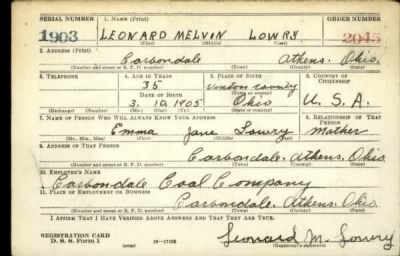 SERIAL NUMBER 1. NAME (Print) ORDER NUMBER
1903 LEONARD MELVIN LOWRY 2045
(First) (Middle) (Last)
2. ADDRESS (Print)
Carbondale Athens Ohio.
(Number and street or R. F. D. number) (Town) (County) (State)
3. TELEPHONE 4. AGE IN YEARS 5. PLACE OF BIRTH 6. COUNTRY OF CITIZENSHIP
35 Vinton County
DATE OF BIRTH (Town or county)
3. 10. 1905 Ohio U. S. A.
(Exchange) (Number) (Mo.) (Day) (Yr.) (State or country)
7. NAME OF PERSON WHO WILL ALWAYS KNOW YOUR ADDRESS 8. RELATIONSHIP OF THAT PERSON
Emma Jane Lowry Mother
(Mr., Mrs., Miss) (First) (Middle) (Last)
9. ADDRESS OF THAT PERSON
Carbondale. Athens. Ohio
(Number and street or R. F. D. number) (Town) (County) (State)
10. EMPLOYER'S NAME
Carbondale Coal Company
11. PLACE OF EMPLOYMENT OR BUSINESS
Carbondale. Athens. Ohio.
(Number and street or R. F. D. number) (Town) (County) (State)
I AFFIRM THAT I HAVE VERIFIED ABOVE ANSWERS AND THAT THEY ARE TRUE.
REGISTRATION CARD
D. S. S. Form 1 (over) Leonard M. Lowry
(Registrant's signature)